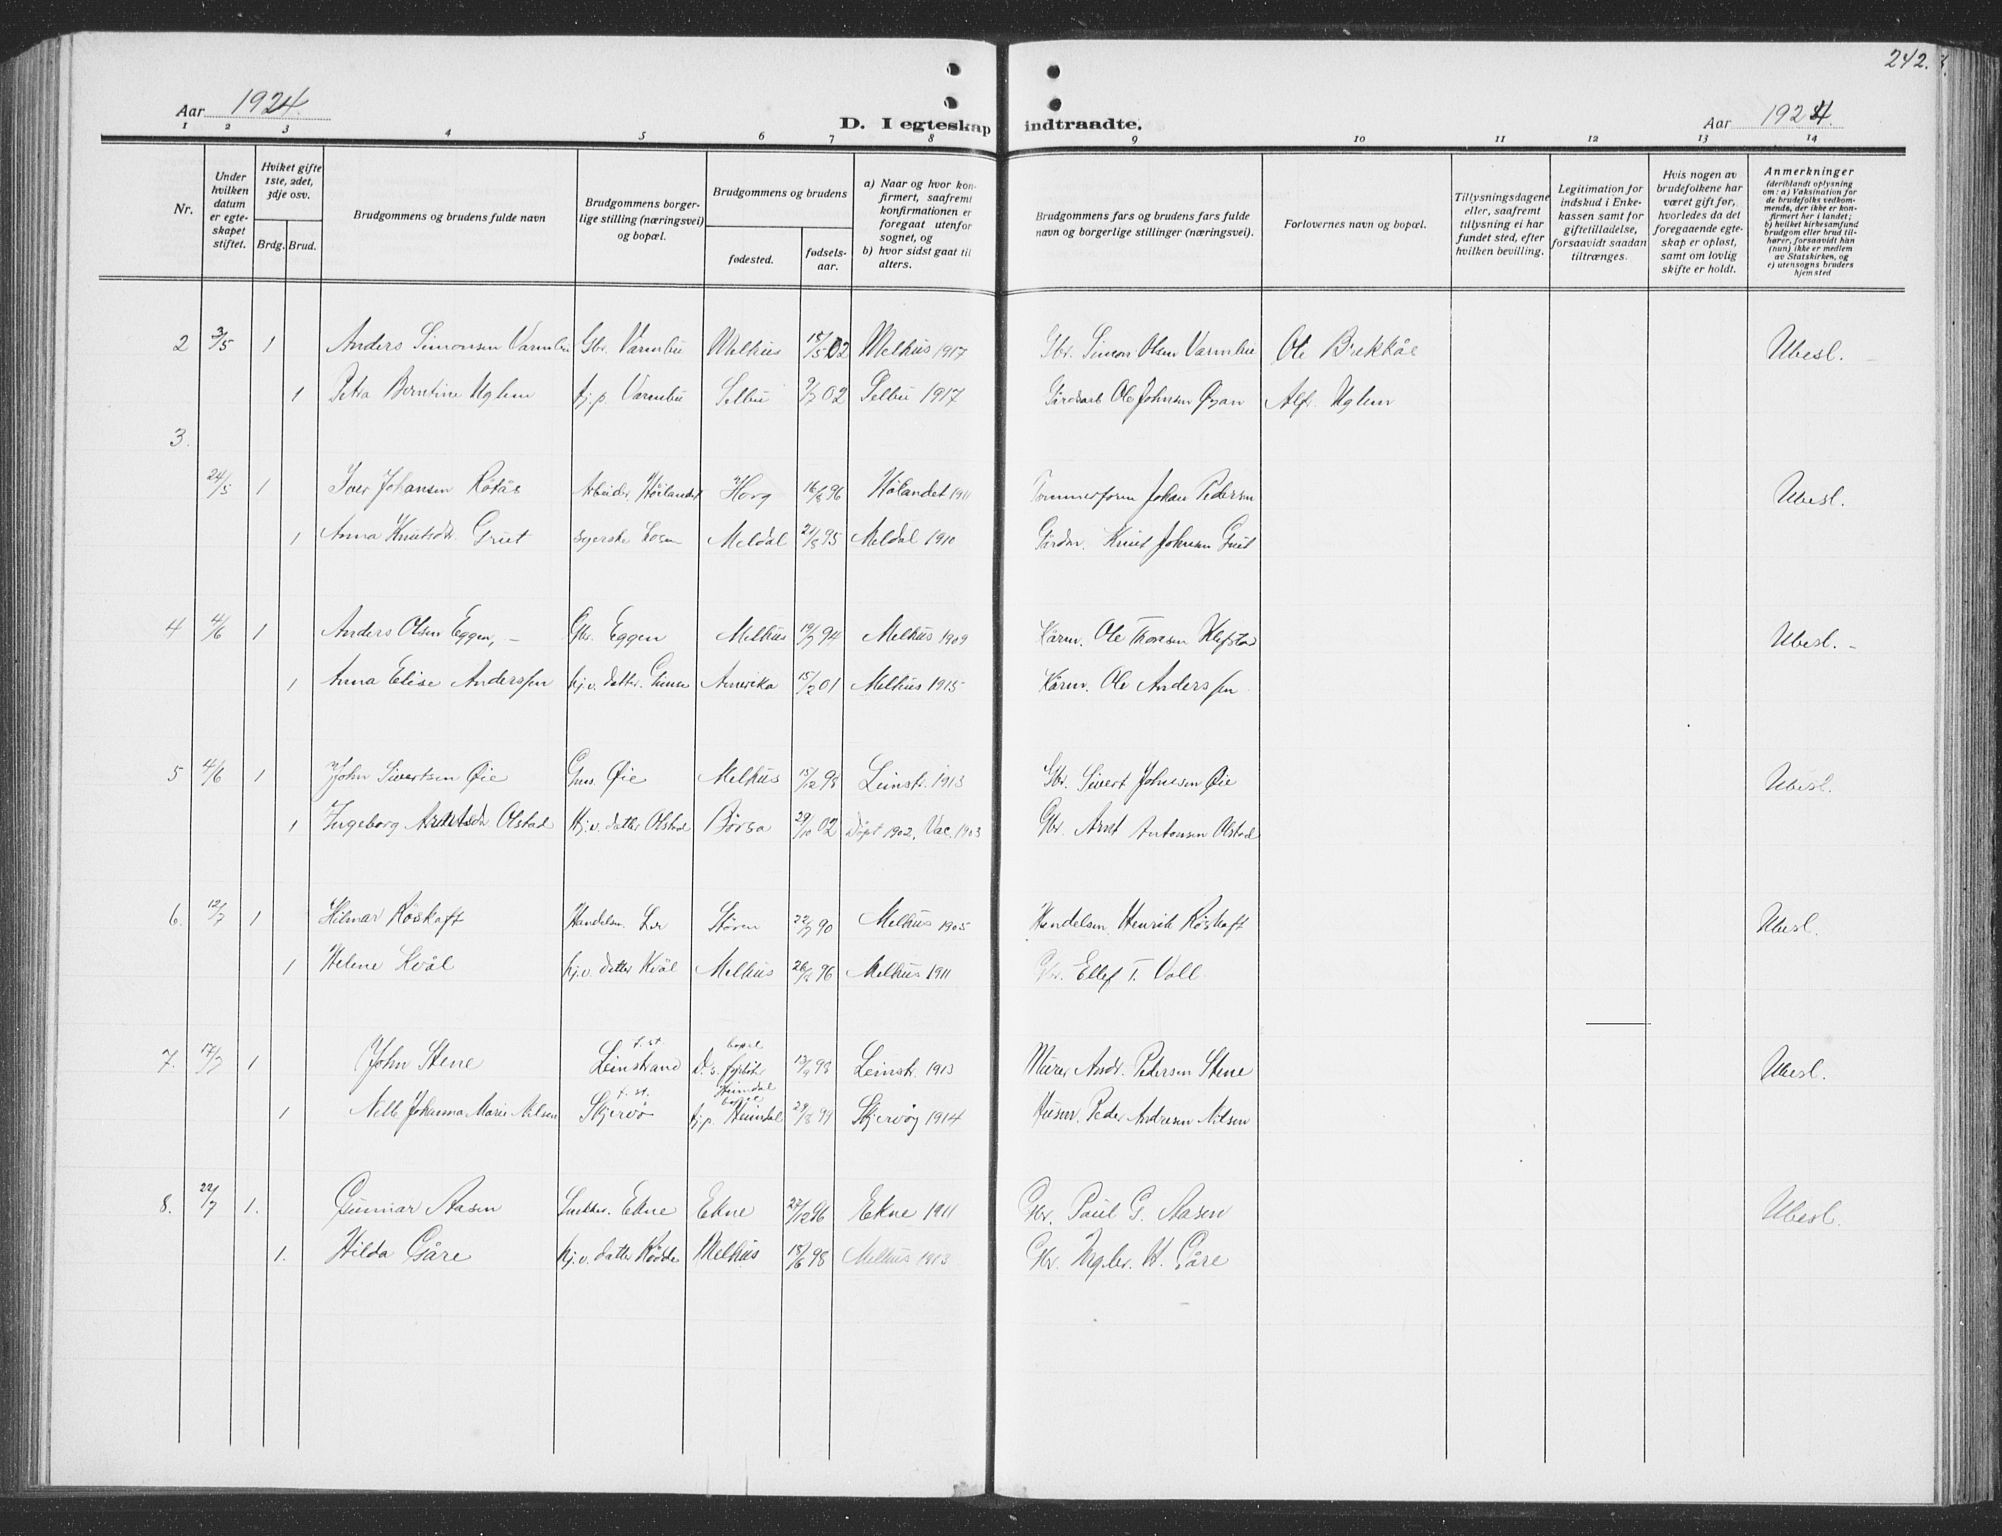 242.
Aar 1924.
D. I egteskap indtraadte.
Aar 1924.
1 2 3 4 5 6 7 8 9 10 11 12 13 14
Nr.
Under hvilken datum er egteskapet stiftet.
Hviket gifte 1ste, 2det, 3dje osv.
Brdg. Brud.
Brudgommens og brudens fulde navn
Brudgommens borgerlige stilling (næringsvei) og bopæl.
Brudgommens og brudens
fødested.
fødselsaar.
a) Naar og hvor konfirmert, saafremt konfirmationen er foregaat utenfor sognet, og
b) hvor sidst gaat til alters.
Brudgommens fars og brudens fars fulde navn og borgerlige stillinger (næringsvei).
Forlovernes navn og bopæl.
Tillysningsdagene eller, saafremt tillysning ei har fundet sted, efter hvilken bevilling.
Legitimation for indskud i Enkekassen samt for giftetilladelse, forsaavidt saadan tiltrænges.
Hvis nogen av brudefolkene har været gift før, hvorledes da det foregaaende egteskap er opløst, samt om lovlig skifte er holdt.
Anmerkninger
(deriblandt oplysning om: a) Vaksination for de brudefolks vedkommende, der ikke er konfirmert her i landet; b) hvilket kirkesamfund brudgom eller brud tilhører, forsaavidt han (hun) ikke er medlem av Statskirken, og c) utensogns bruders hjemsted
2 3/5 1 Anders Simonsen Varmbu Gbr. Varmbu Melhus 15/5 02 Melhus 1917 Gbr. Simon Olsen Varmbu Ole Brekkåe Ubesl.
1 Petra Berntine Uglem hj.p. Varmbu Selbu 9/7 02 Selbu 1917 Gårdarb Ole Johnsen Øyan Alf. Uglem
3.
24/5 1 Iver Johansen Røtås Arbeider Hølandet Horg 16/8 96 Hølandet 1911 Tømmerform Johan Pedersen Ubesl.
1 Anna Knutsdr. Grut syerske Meldal 24/8 95 Meldal 1910 Gårdbr. Knut Johnsen Grut
4 4/6 1 Anders Olsen Eggen, - Gbr. Eggen Melhus 19/7 94 Melhus 1909 Kårm. Ole Thoresen Klefstad Ubesl. -
1 Anna Elise Anderssen hj.v. datter. Gimse Amerika 15/2 01 Melhus 1915 Kårm. Ole Anderssen
5 4/6 1 John Sivertsen Øie Gms. Øie Melhus 15/12 98 Leinstr. 1913 Gbr. Sivert Johnsen Øie Ubesl.
1 Ingeborg Arntsdr. Olstad Hj.v. datter Olstad Børsa 29/10 02 Døpt 1902, Vac. 1903 Gbr. Arnt Antonsen Olstad
6. 12/7 1 Hilmar Røskaft Handelsm. Ler Støren 22/7 90 Melhus 1905 Handelsm. Henrik Røskaft Ubesl.
1 Helene Kvål hj.v. datter Kvål Melhus 26/2 96 Melhus 1911 Gbr. Ellef T. Voll
7. 17/7 1 John Stene f. st Leinstrand bopel D. s. fyrbøter Heimdal 13/9 98 Leinstr. 1913 Murer Andr. Pedersen Stene Ubesl.
1 Nelly Johanna Marie Nilsen f. st. Skjervø bopæl hj.p. Heimdal 29/8 99 Skjervøy 1914 Husm. Peder Andersen Nilsen
8. 22/7 1. Gunnar Aasen Ekne Ekne 27/12 96 Ekne 1911 Gbr. Paul G. Aasen Ubesl.
1. Hilda Gåre hj.v. datter Rødde Melhus 15/6 98 Melhus 1913 Gbr. Ingbr. H. Gåre